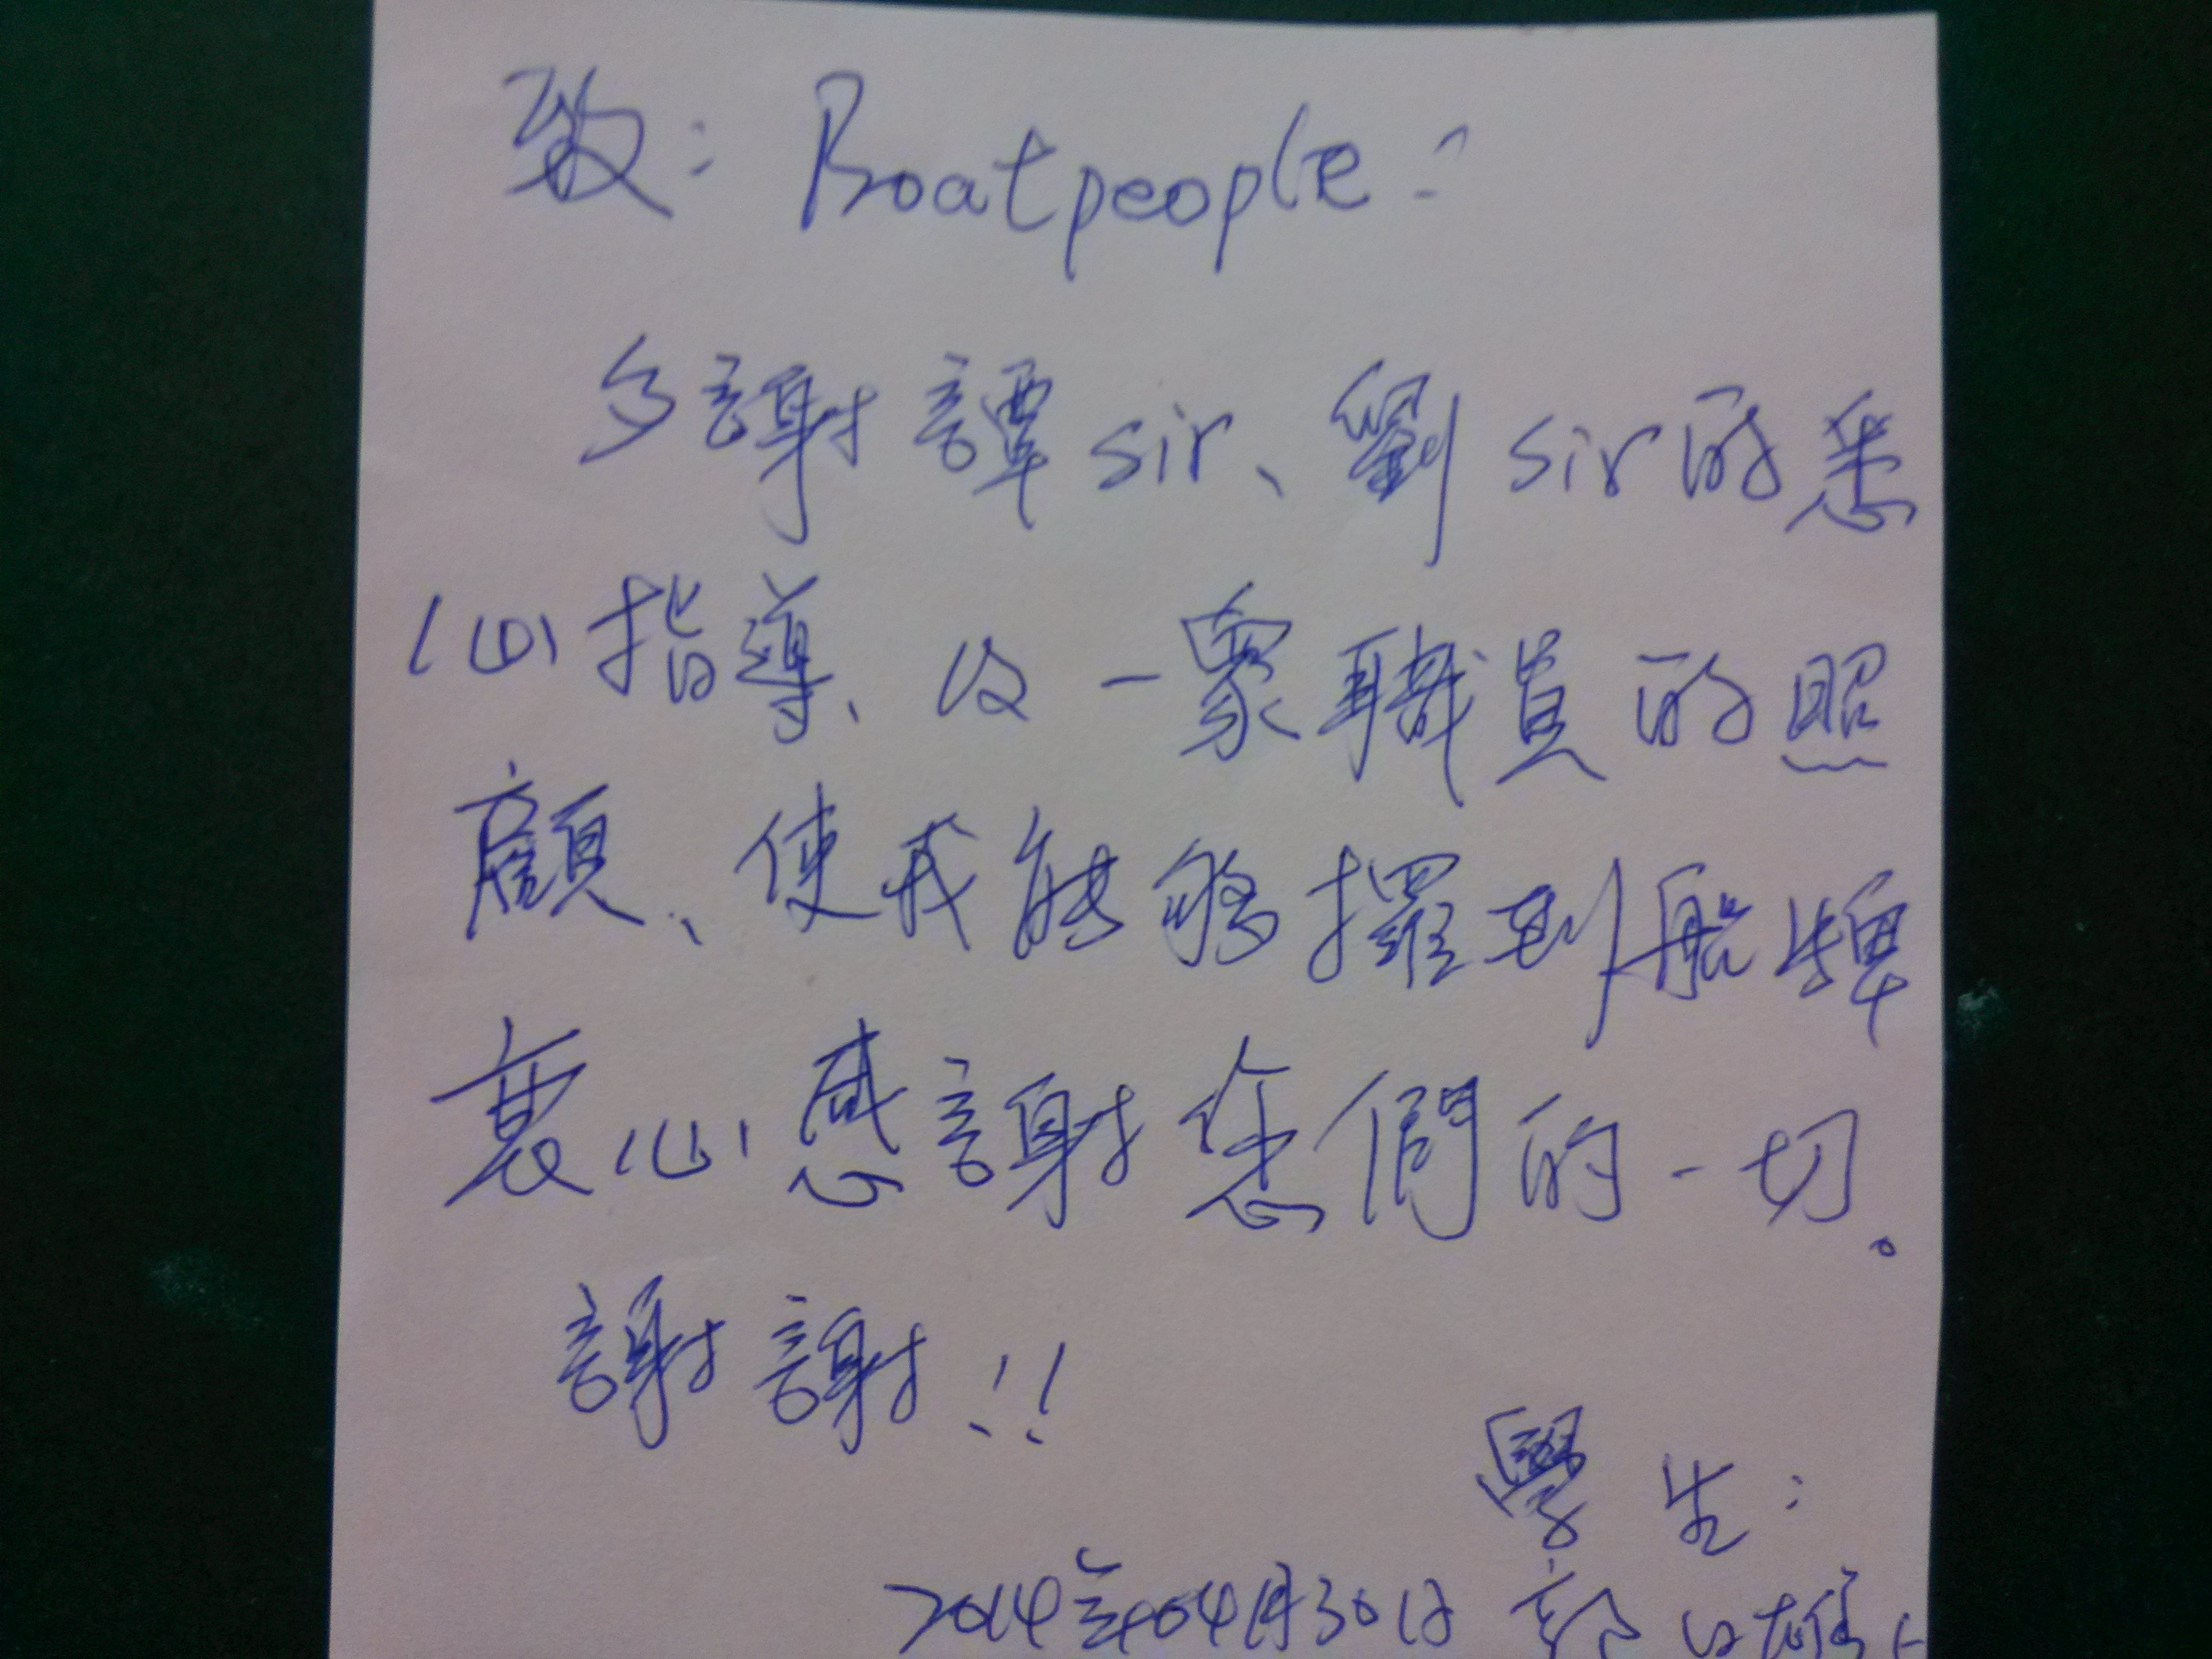 致：Boatpeople：
多謝譚sir、劉sir的悉
心指導、及一眾職員的照
顧、使我能够攞到船牌
衷心感謝您們的一切。
謝謝!!
學生：
2014年04月30日 郭